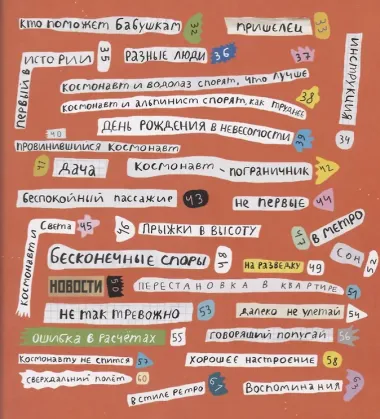 кто поможет бабушкам 32
пришелец 33
первый в истории 35
разные люди 36
37
инструкция 34
космонавт и водолаз спорят, что лучше
космонавт и альпинист спорят, как труднее 38
день рождения в невесомости 39
40
провинившийся космонавт
дача
космонавт - пограничник 42
беспокойный пассажир 43
не первые 44
космонавт и Света 45
46 прыжки в высоту
47 в метро
бесконечные споры 48
на разведку 49
сон 52
новости 50
перестановка в квартире 51
не так тревожно 53
далеко не улетай 54
ошибка в расчётах 55
говорящий попугай 56
Космонавту не спится 57
хорошее настроение 58
сверхдальний полёт 60
в стиле ретро 61
Воспоминания